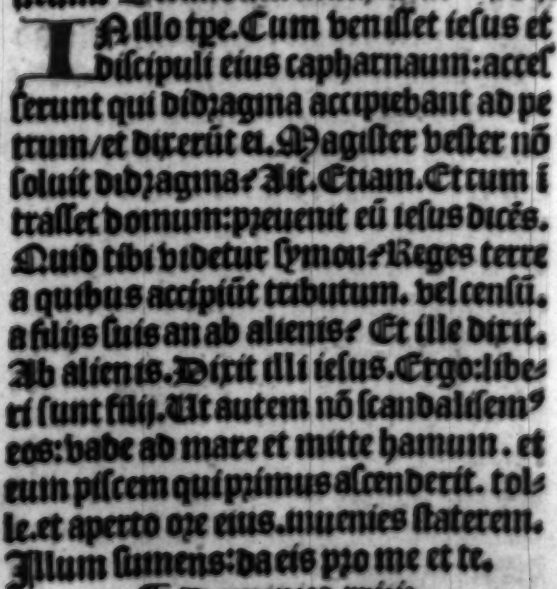 IN illo tpe. Cum venisset iesus et
discipuli eius capharnaum: acces
serunt qui didragma accipiebant ad pe
trum/et dixerūt ei. Magister vester nō
soluit didragma? Ait. Etiam. Et cum ī
trasset domum: preuenit eū iesus dicēs.
Quid tibi videtur symon? Reges terre
a quibus accipiūt tributum. vel censū.
a filijs suis an ab alienis? Et ille dixit.
Ab alienis. Dixit illi iesus. Ergo: libe⸗
ri sunt filij. Ut autem nō scandalisemꝰ
eos: vade ad mare et mitte hamum. et
eum piscem qui primus ascenderit. tol⸗
le. et aperto ore eius. inuenies staterem.
Illum sumens: da eis pro me et te.